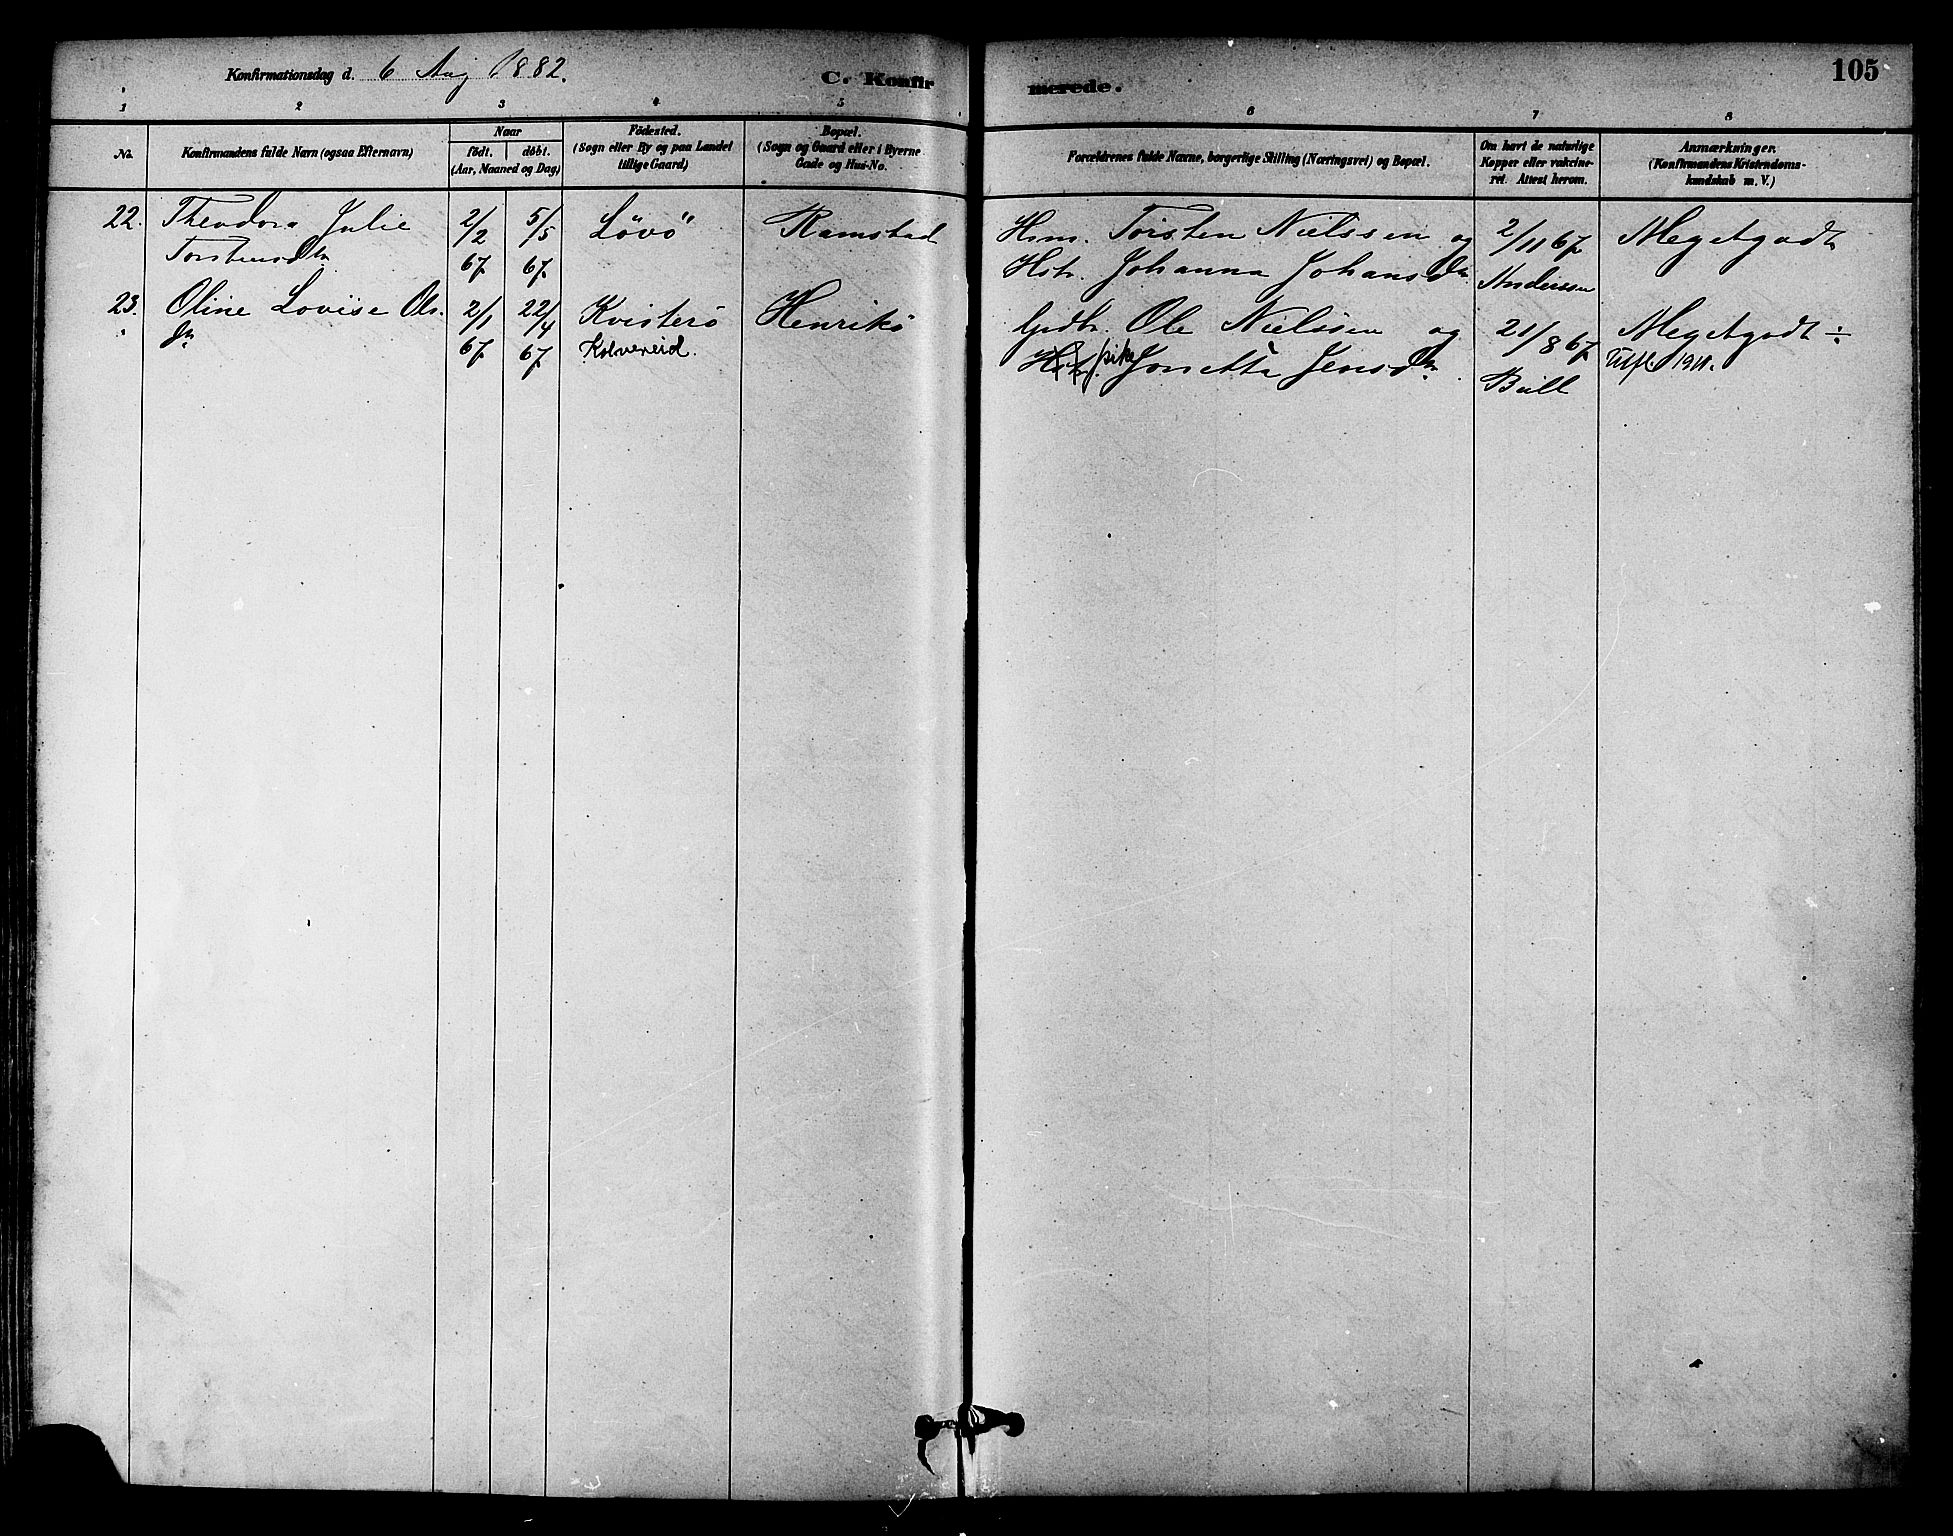 Konfirmationsdag d. 6 Aug 1882.
C. Konfirmerede.
105
1 2 3 4 5 6 7 8
No.
Konfirmandens fulde Navn (ogsaa Efternavn)
Naar
født. døbt.
(Aar, Maaned og Dag)
Fødested.
(Sogn eller By og paa Landet
tillige Gaard)
Bopæl.
(Sogn og Gaard eller i Byerne
Gade og Hus-No.
Forældrenes fulde Navne, borgerlige Stilling (Næringsvei) og Bopæl.
Om havt de naturlige
Kopper eller vakcine-
ret. Attest herom.
Anmærkninger.
(Konfirmandens Kristendoms-
kundskab m. V.)
22. Theodora Julie 2/2 5/5 Løvö Ramstad Hsm. Torsten Nielssen og 2/11 67 Megetgodt
Torstensdtr 67 67 Hstr. Johanna Johansdtr Anderssen
23. Oline Lovise Ols- 2/1 22/4 Kvisterö Henrikö Gdbr. Ole Nielssen og 21/8 67 Megetgodt ÷
dtr 67 67 Kolvereid. Hstr. pike Jonetta Jensdtr. Bull Utfl. 1911.